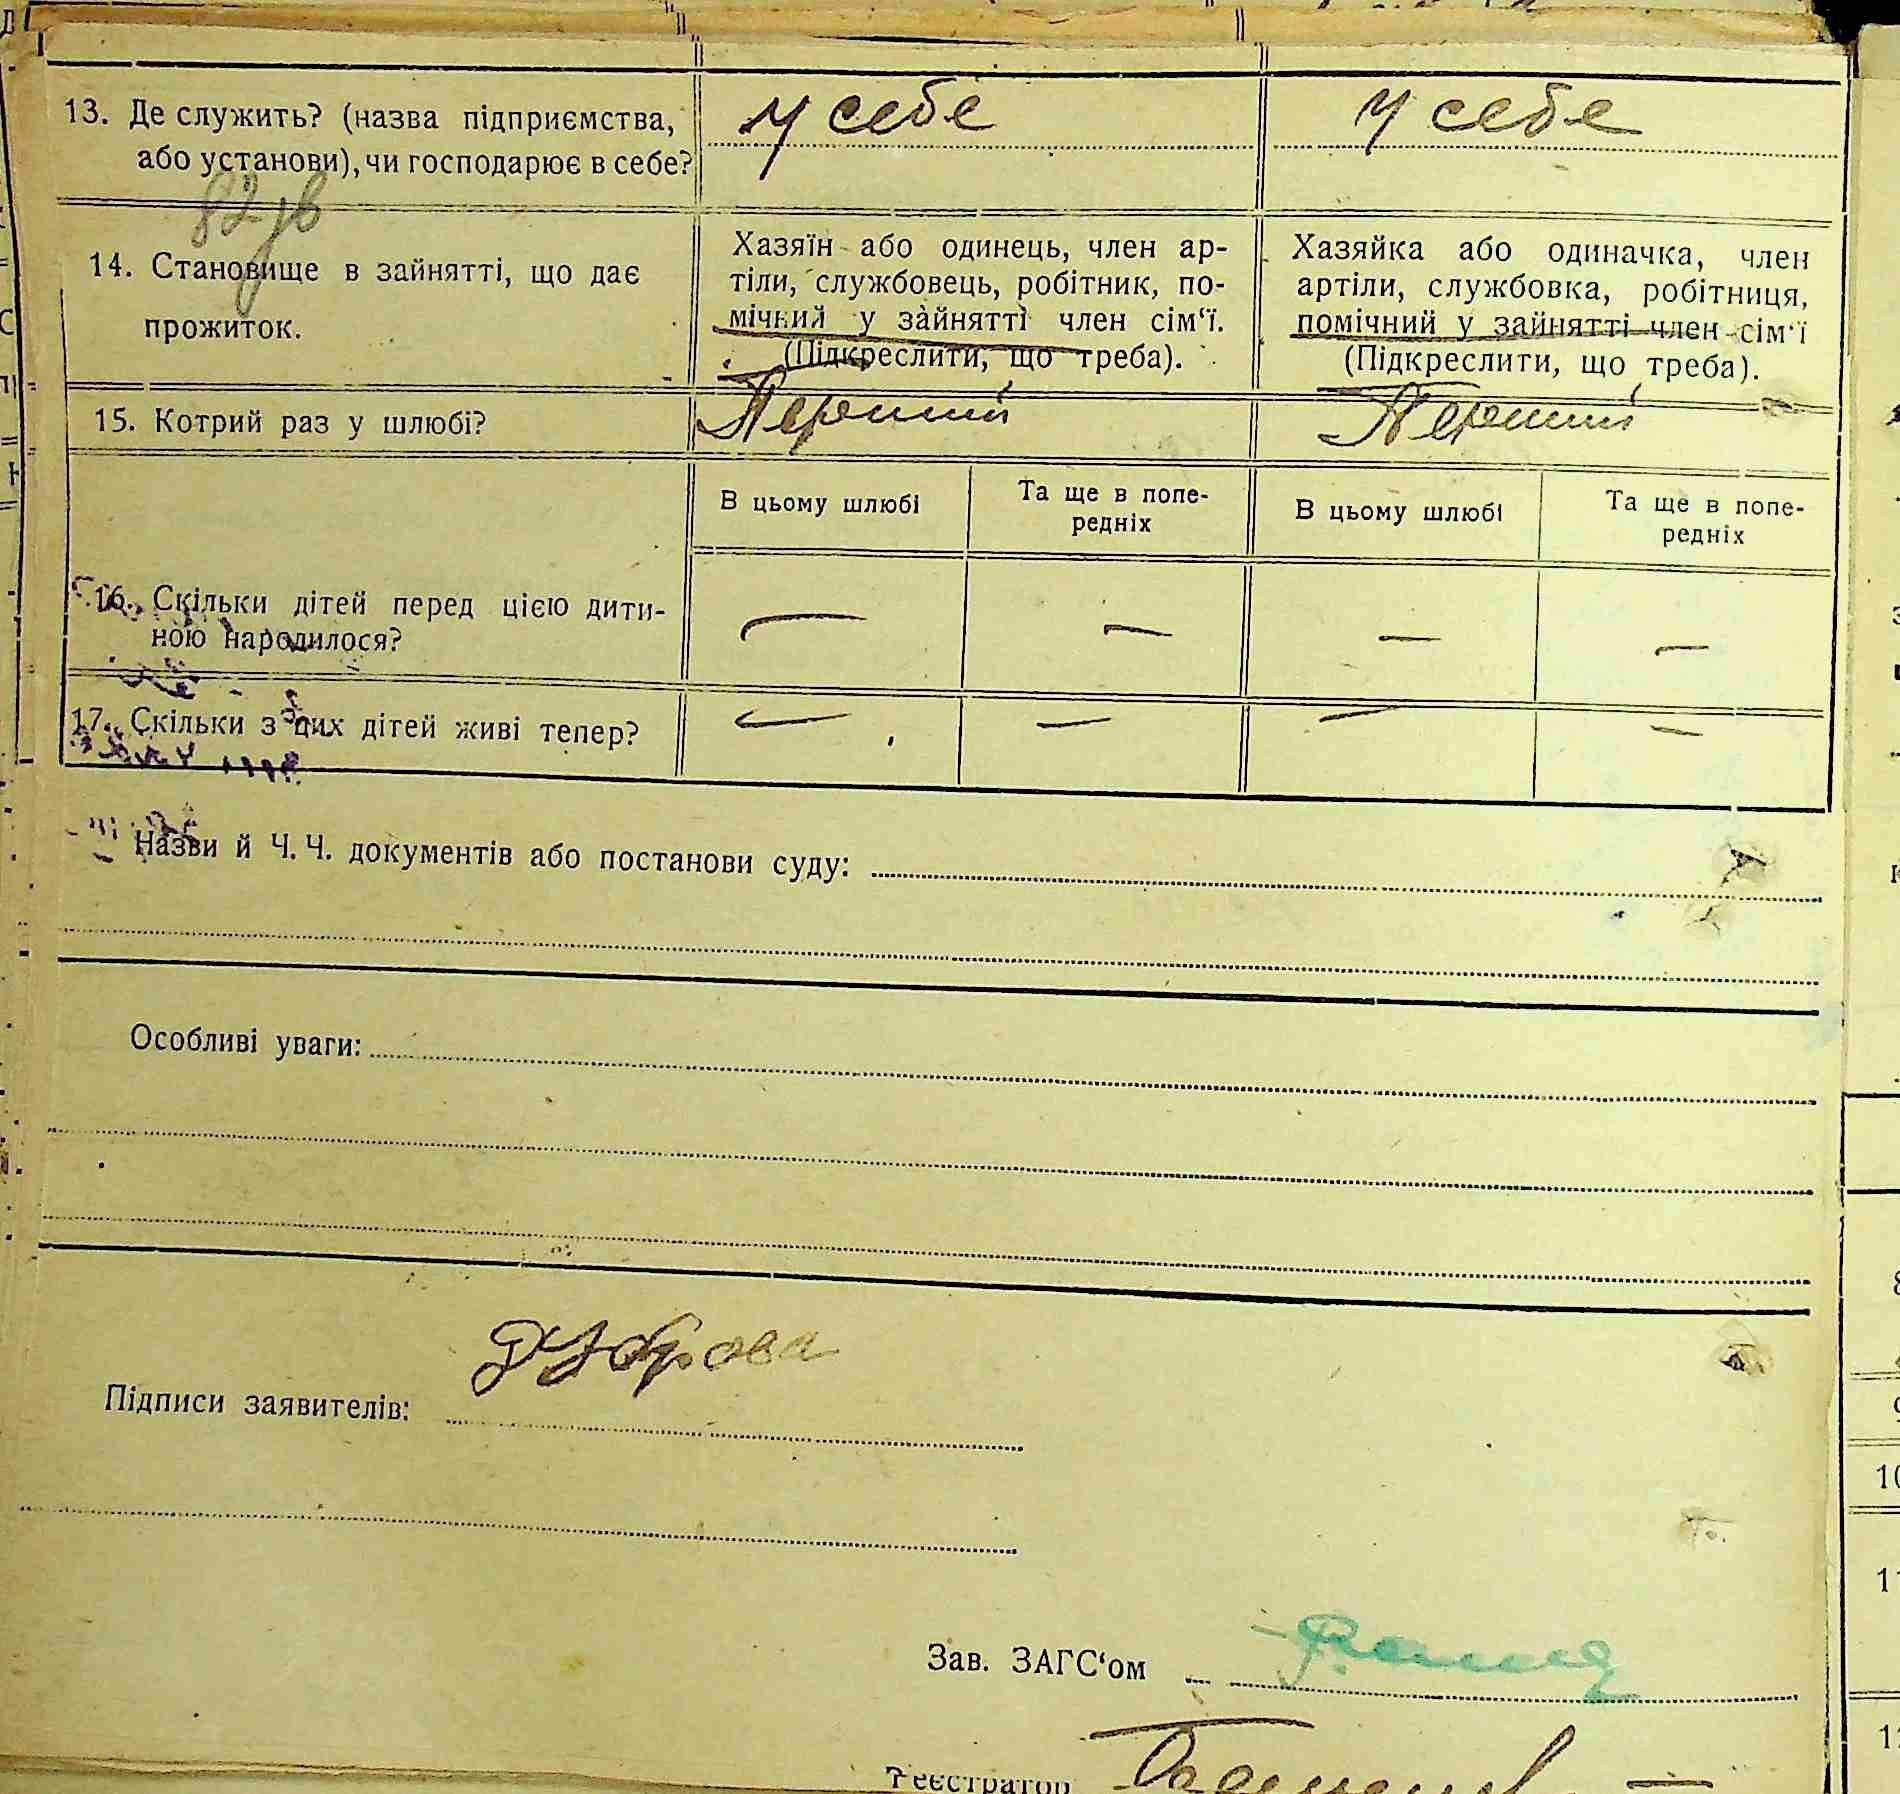 13. Де служить? (назва підприємства, у себе у себе
або установи), чи господарює в себе?
14. Становище в зайнятті, що дає
прожиток.
Хазяїн або одинець, член ар-
тіли, службовець, робітник, по-
мічний у зайнятті член сім‘ї.
(Підкреслити, що треба).
Хазяйка або одиначка, член
артіли, службовка, робітниця,
помічний у зайнятті член сім‘ї
(Підкреслити, що треба).
15. Котрий раз у шлюбі? Перший Перший
В цьому шлюбі
Та ще в попе-
редніх
В цьому шлюбі
Та ще в попе-
редніх
16. Скільки дітей перед цією дити-
ною народилося? — — — —
17. Скільки з цих дітей живі тепер? — — — —
Назви й Ч. Ч. документів або постанови суду:
Особливі уваги:
Підписи заявителів:
Зав. ЗАГС‘ом
Реєстратор